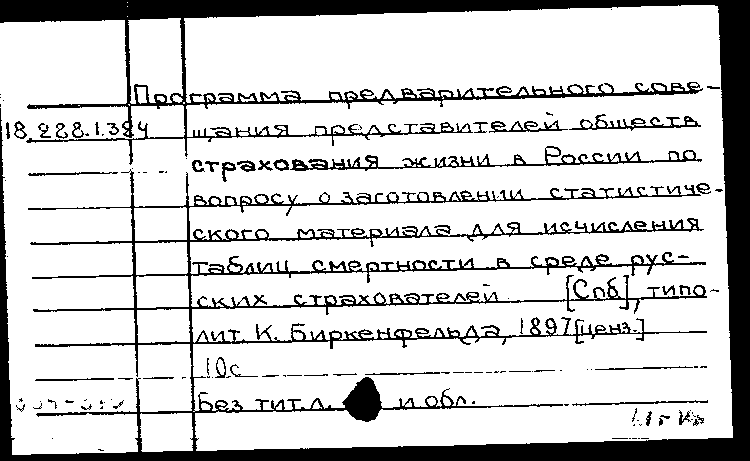 Программа предварительного сове-
18.288.1.384 щания представителей обществ
страхования жизни в России по
вопросу о заготовлении статистиче-
ского материала для исчисления
таблиц смертности в среде рус-
ских страхователей [Спб], типо-
лит. К. Биркенфельда, 1897 [ценз.]
10с
Без тит. л. и обл.